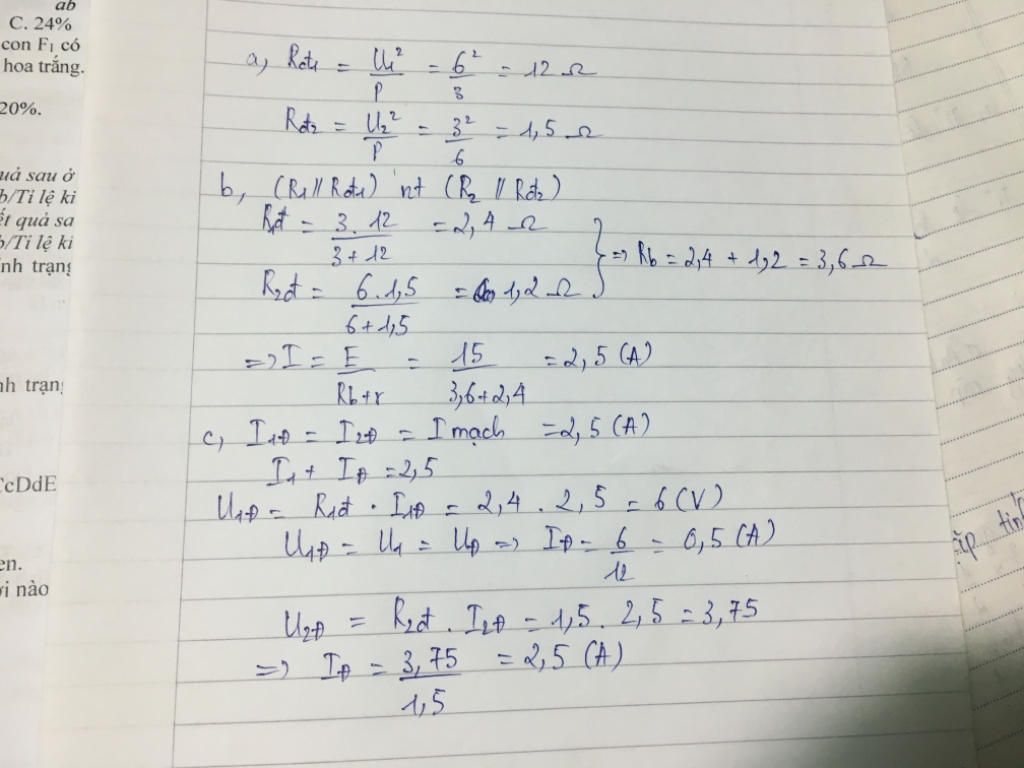 ab
C. 24%
con F1 có
hoa trắng.
20%.
uả sau ở
b/Tỉ lệ ki
ết quả sa
b/Tỉ lệ ki
ính trạng
nh trạng
CcDdE
en.
ời nào
a, Rđ1 = U1²/P = 6²/3 = 12 Ω
Rđ2 = U2²/P = 3²/6 = 1,5 Ω
b, (R1 // Rđ1) nt (R2 // Rđ2)
R1đ = 3.12/3+12 = 2,4 Ω
} => Rb = 2,4 + 1,2 = 3,6 Ω
R2đ = 6.1,5/6+1,5 = 1,2 Ω
=> I = E/Rb+r = 15/3,6+2,4 = 2,5 (A)
c, I1Đ = I2Đ = I mạch = 2,5 (A)
I1 + IĐ = 2,5
U1Đ = R1đ . I1Đ = 2,4 . 2,5 = 6 (V)
U1Đ = U1 = UĐ => IĐ = 6/12 = 0,5 (A)
U2Đ = R2đ . I2Đ = 1,5 . 2,5 = 3,75
=> IĐ = 3,75/1,5 = 2,5 (A)